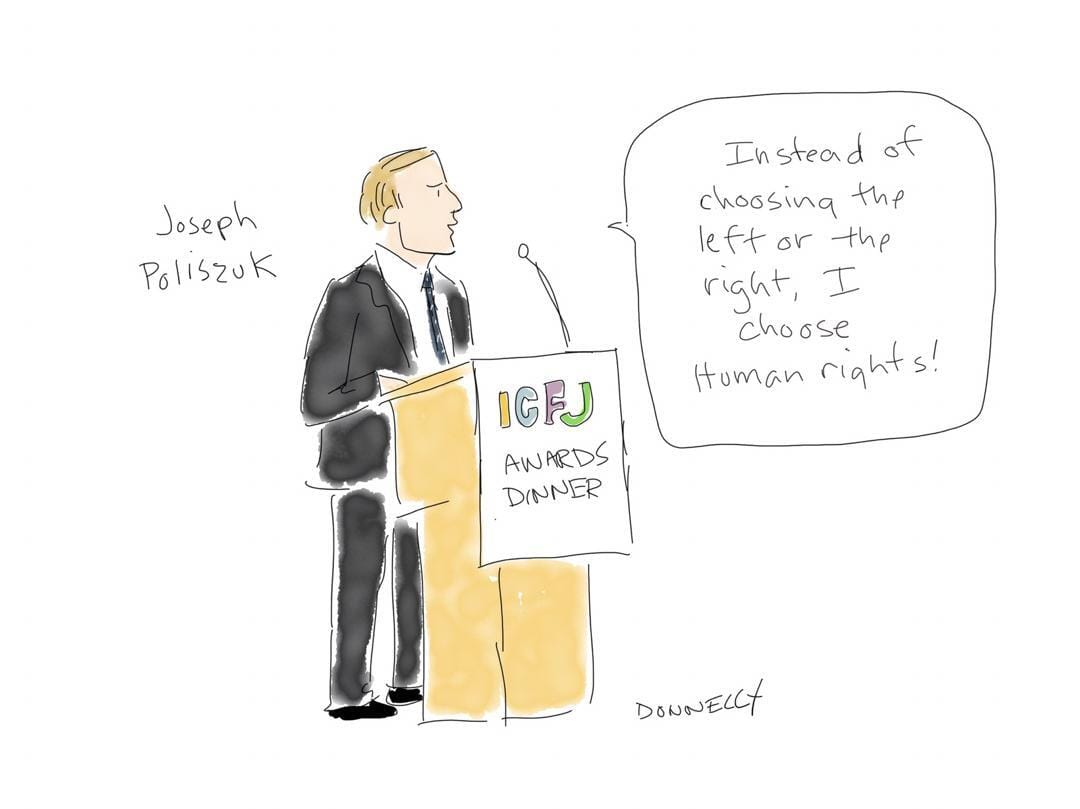 Joseph
Poliszuk
Instead of
choosing the
left or the
right, I
choose
Human rights!
ICFJ
AWARDS
DINNER
DONNELLY